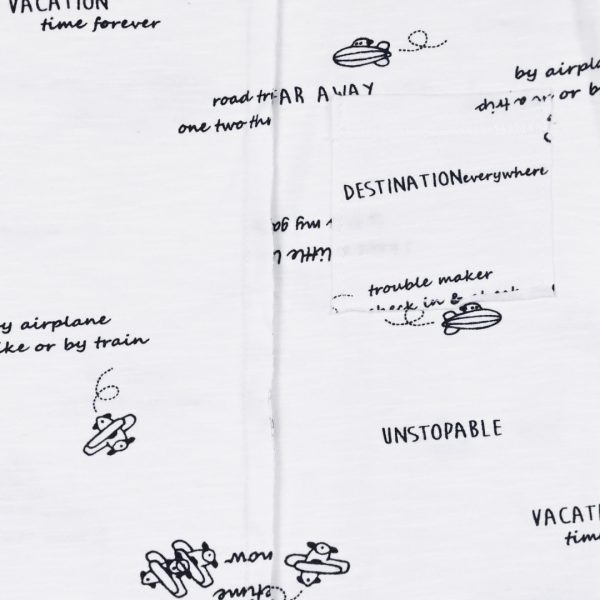 VACATION
time forever
by airpla
road tri
AR AWAY
or b
one two th
DESTINATION everywhere
my go
little
trouble maker
check in &
y airplane
ike or by train
UNSTOPABLE
VACATI
time
now